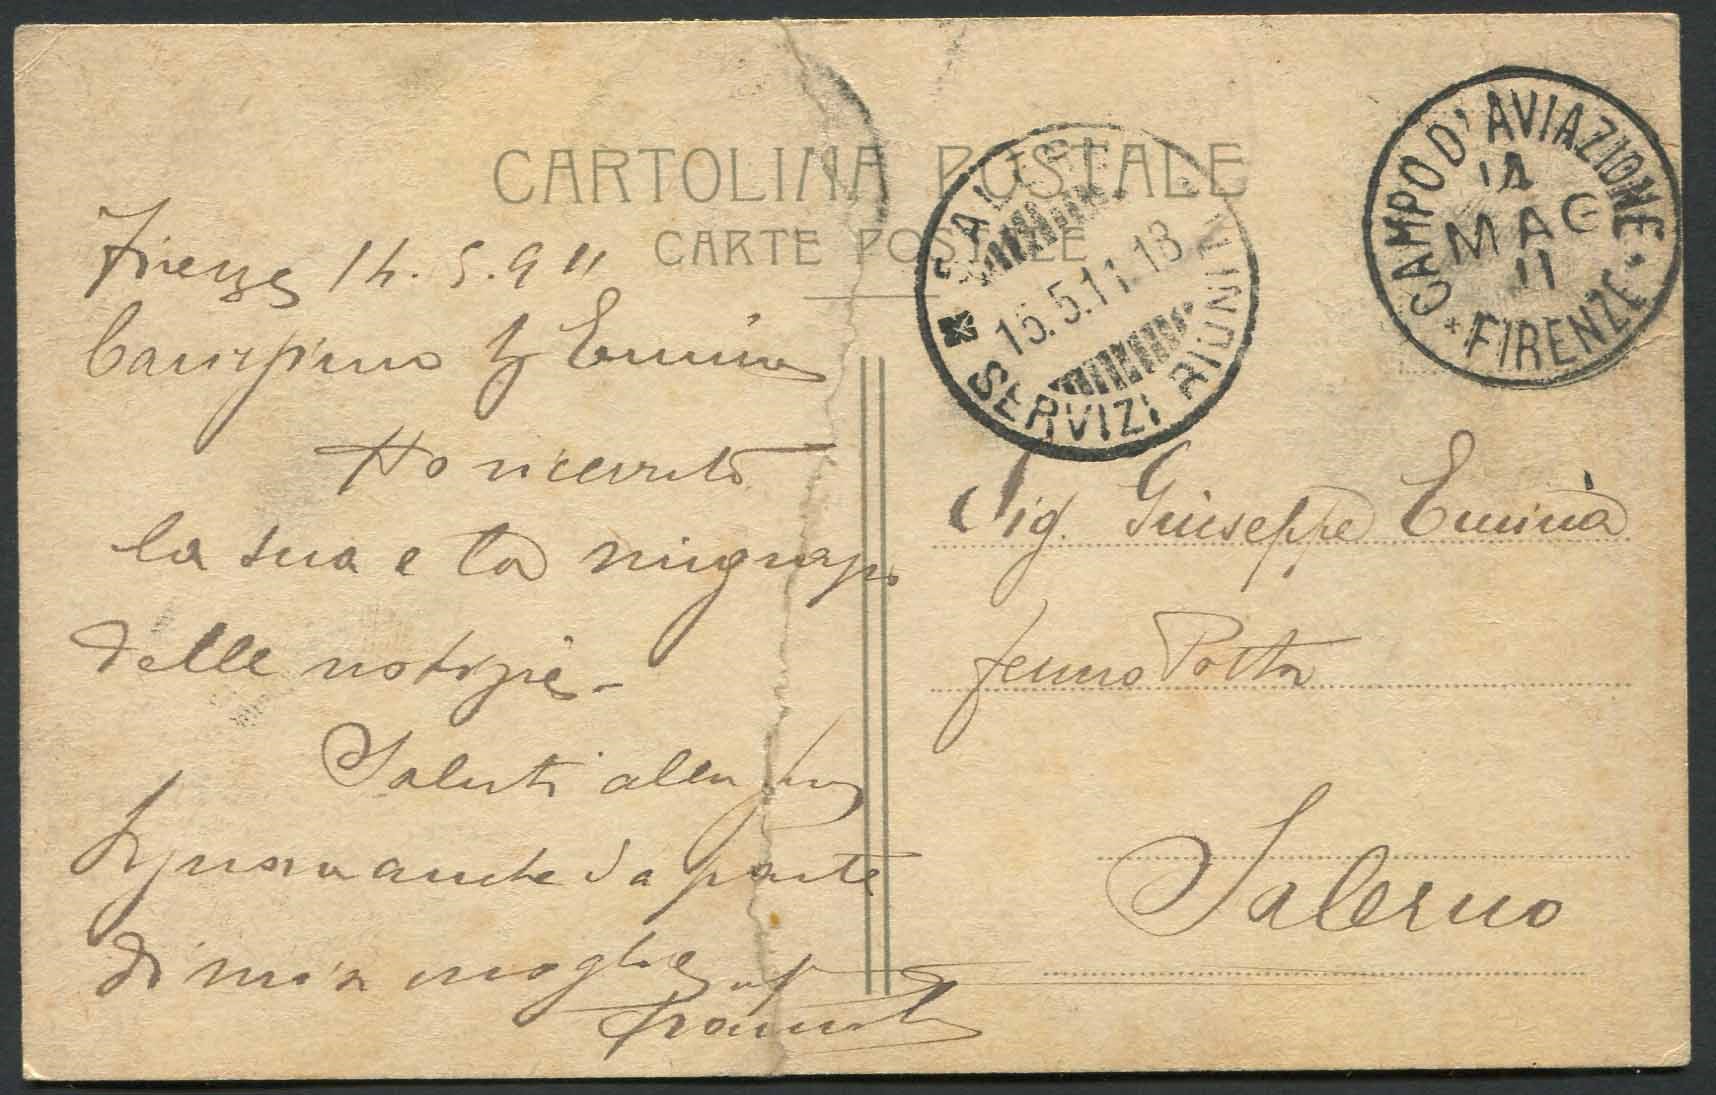 CARTOLINA POSTALE
CARTE POSTALE
Firenze 14.5.911
Carissimo Eminà
Ho ricevuto
la sua e la ringrazio
delle notizie.
Saluti alla
Signora anche da parte
di mia moglie
SALERNO
15.5.11.18
SERVIZI RIUNITI
CAMPO D'AVIAZIONE
14
MAG
11
* FIRENZE *
Sig. Giuseppe Eminà
fermo Posta
Salerno